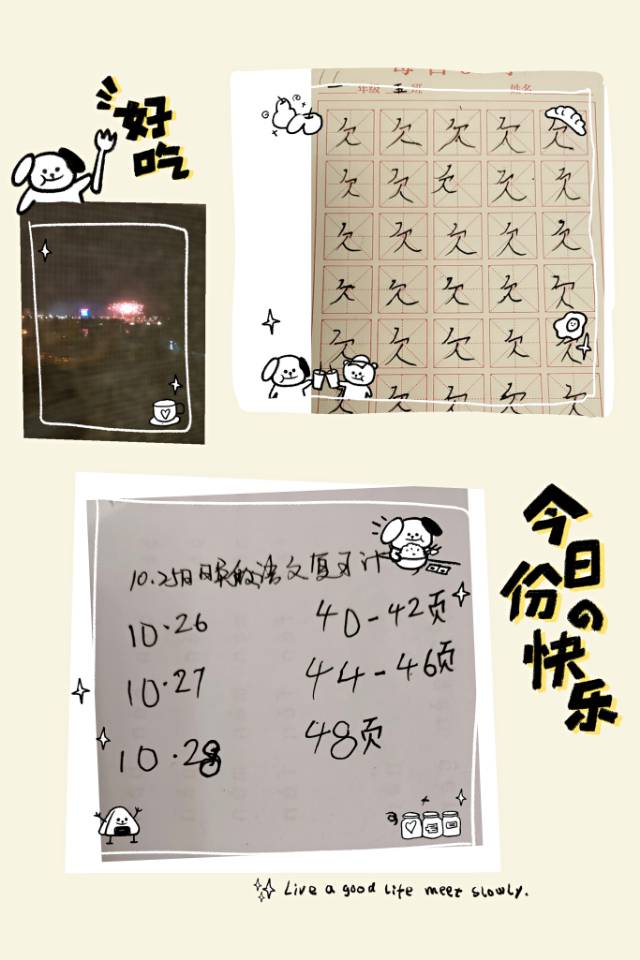 好吃
一年级 五班 姓名
欠 欠 欠 欠 欠
欠 欠 欠 欠 欠
欠 欠 欠 欠 欠
欠 欠 欠 欠 欠
欠 欠 欠 欠 欠
欠 欠 欠 欠 欠
今日份の快乐
10.25日 语文复习计
10.26 40-42页
10.27 44-46页
10.28 48页
Live a good life meet slowly.